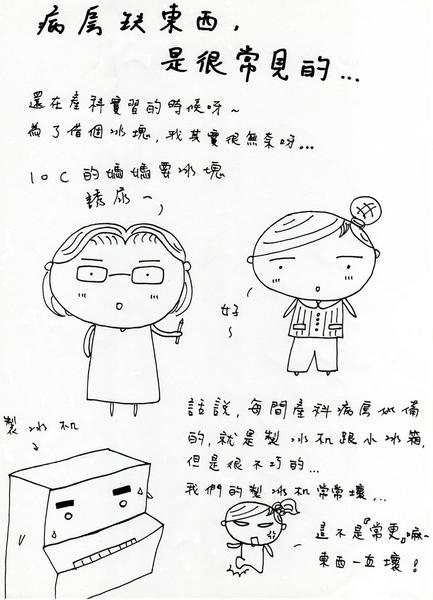 病房缺東西，
是很常見的...
還在產科實習的時候呀~
為了借個冰塊，我其實很無奈呀...
10C的媽媽要冰塊
誘尿~
好~
製冰机
話說，每間產科病房必備
的，就是製冰机跟小冰箱，
但是很不巧的...
我們的製冰机常常壞...
這不是『常更』嘛~
東西一直壞！